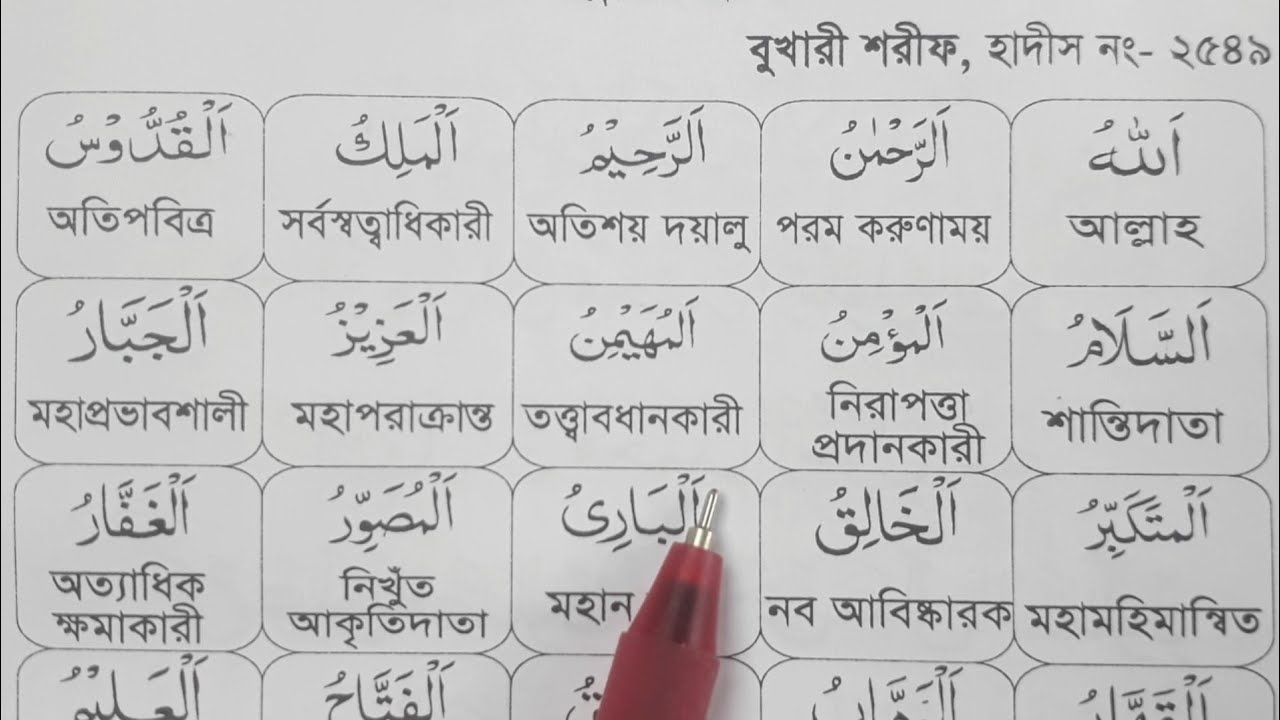 বুখারী শরীফ, হাদীস নং- ২৫৪৯
اَللّٰهُ
আল্লাহ
اَلرَّحْمٰنُ
পরম করুণাময়
اَلرَّحِيْمُ
অতিশয় দয়ালু
اَلْمَلِكُ
সর্বস্বত্বাধিকারী
اَلْقُدُّوْسُ
অতিপবিত্র
اَلسَّلَامُ
শান্তিদাতা
اَلْمُؤْمِنُ
নিরাপত্তা
প্রদানকারী
اَلْمُهَيْمِنُ
তত্ত্বাবধানকারী
اَلْعَزِيْزُ
মহাপরাক্রান্ত
اَلْجَبَّارُ
মহাপ্রভাবশালী
اَلْمُتَكَبِّرُ
মহামহিমান্বিত
اَلْخَالِقُ
নব আবিষ্কারক
اَلْبَارِئُ
মহান
اَلْمُصَوِّرُ
নিখুঁত
আকৃতিদাতা
اَلْغَفَّارُ
অত্যাধিক
ক্ষমাকারী
اَلْفَتَّاحُ
اَلْعَلِيْمُ